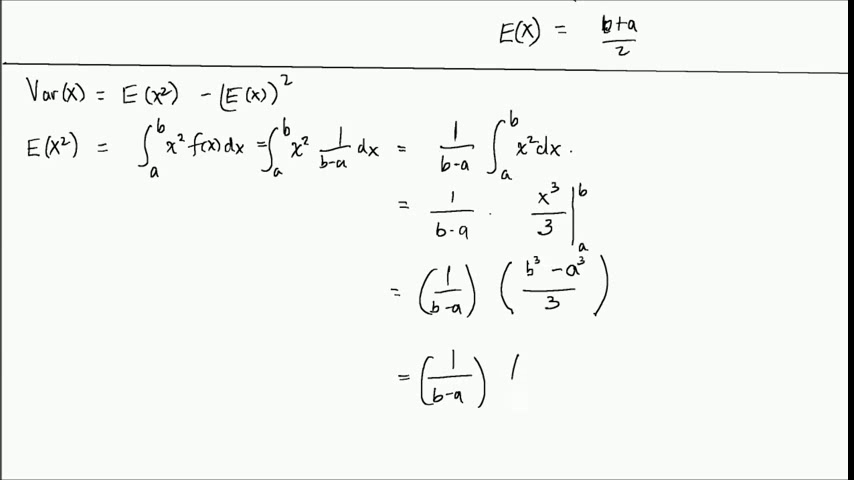 E(X) = b+a/2
Var(X) = E(X²) - (E(X))²
E(X²) = ∫_a^b x² f(x) dx = ∫_a^b x² 1/(b-a) dx = 1/(b-a) ∫_a^b x² dx.
= 1/(b-a) · x³/3 |_a^b
= (1/(b-a)) ((b³ - a³)/3)
= (1/(b-a)) (